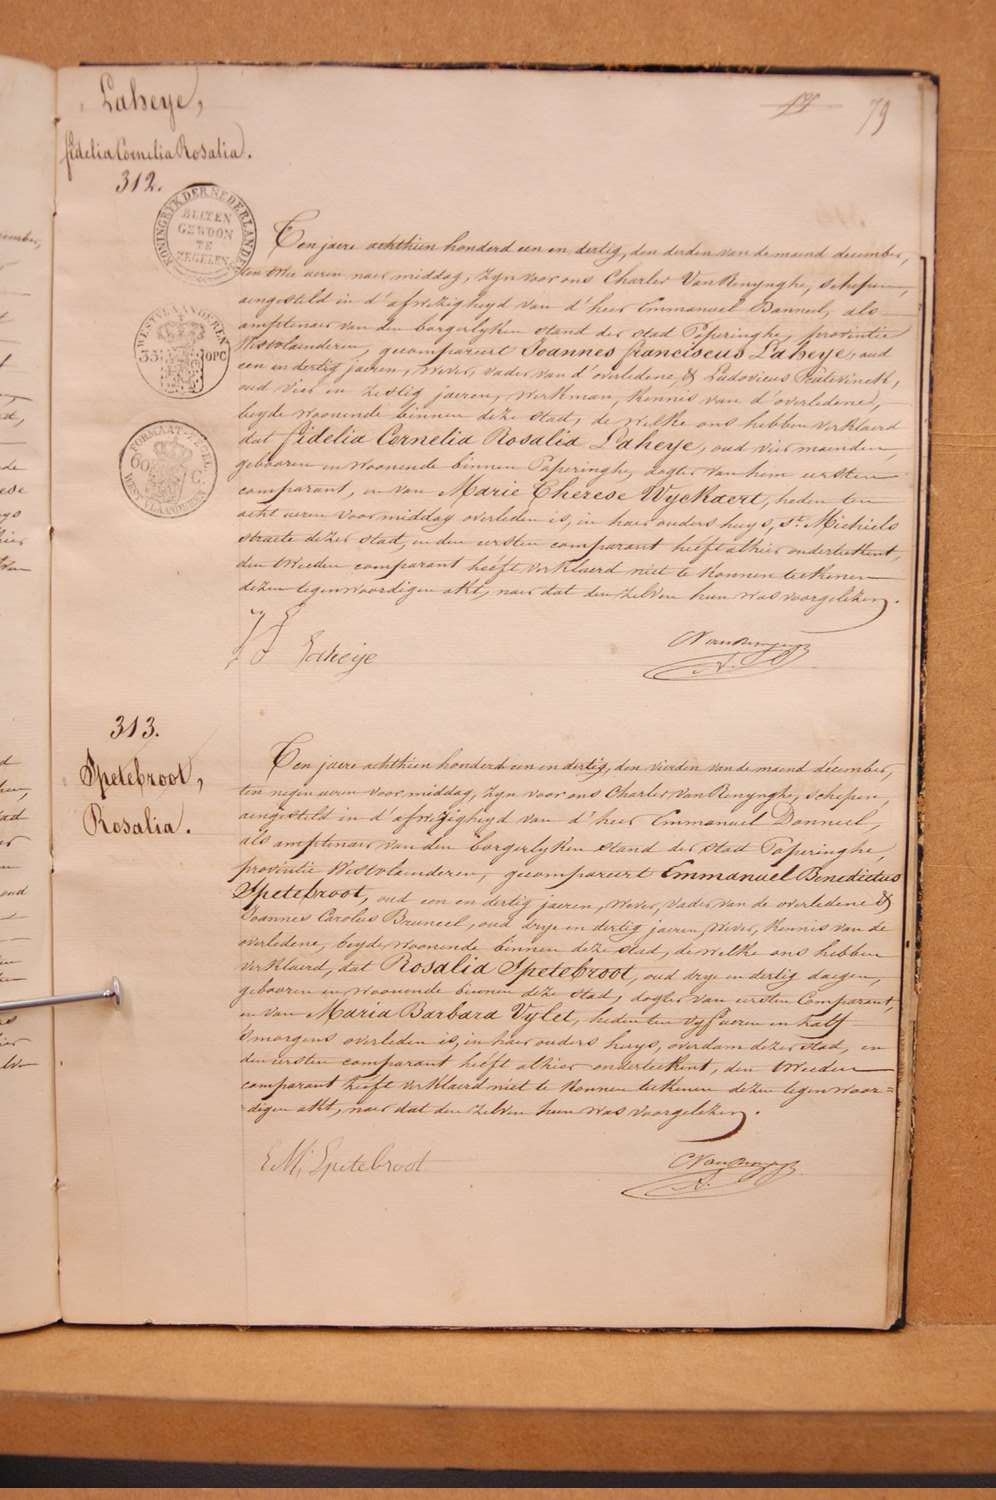 Laheye,
fidelia Cornelia Rosalia.
312.
79
KONINGRYK DER NEDERLANDEN
BUITEN
GEWOON
TE
ZEGELEN
WESTVLAANDEREN
33 OPC
FORMAAT-ZEGEL
60 C
WESTVLAANDEREN
Ten jaere achthien honderd een en dertig, den derden van de maend december,
ten twee ueren naer middag, zyn voor ons Charles Van Renynghe, schepen,
aengesteld in d'afwezigheyd van d'heer Emmanuel Danneel, als
amptenaer van den borgerlyken stand der stad Poperinghe, provintie
Westvlaenderen, gecompareert Joannes franciscus Laheye, oud
een en dertig jaeren, wever, vader van d'overledene, & Ludovicus
oud vier en zestig jaeren, werkman, kennis van d'overledene,
beyde woonende binnen deze stad, de welke ons hebben verklaerd
dat fidelia Cornelia Rosalia Laheye, oud vier maenden,
gebooren en woonende binnen Poperinghe, dogter van hem eersten
comparant, en van Marie Therese Wyckaert, heden ten
acht ueren voormiddag overleden is, in haer ouders huys, St. Michiels
straete dezer stad, en den eersten comparant heeft alhier onderteekent,
den tweeden comparant heeft verklaerd niet te konnen teekenen
dezen tegenwoordigen akt, naer dat den zelven hun was voorgelezen.
J F Laheije
CVanRenynghe
313.
Spetebroot,
Rosalia.
Ten jaere achthien honderd een en dertig, den vierden van de maend december,
ten negen ueren voor middag, zyn voor ons Charles van Renynghe, schepen,
aengesteld in d'afwezigheyd van d'heer Emmanuel Danneel,
als amptenaer van den borgerlyken stand der stad Poperinghe,
provintie Westvlaenderen, gecompareert Emmanuel Benedictus
Spetebroot, oud een en dertig jaeren, wever, vader van de overledene &
Joannes Carolus Bruneel, oud drye en dertig jaeren, wever, kennis van de
overledene, beyde woonende binnen deze stad, de welke ons hebben
verklaerd, dat Rosalia Spetebroot, oud drye en dertig daegen,
gebooren en woonende binnen deze stad, dogter van eersten Comparant,
en van Maria Barbara Vylet, heden ten vyf ueren en half
's morgens overleden is, in haer ouders huys, overdam dezer stad, en
den eersten comparant heeft alhier onderteekent, den tweeden
comparant heeft verklaerd niet te konnen teekenen dezen tegenwoor=
digen akt, naer dat den zelven hun was voorgelezen.
E M Spetebroot
CVanRenynghe